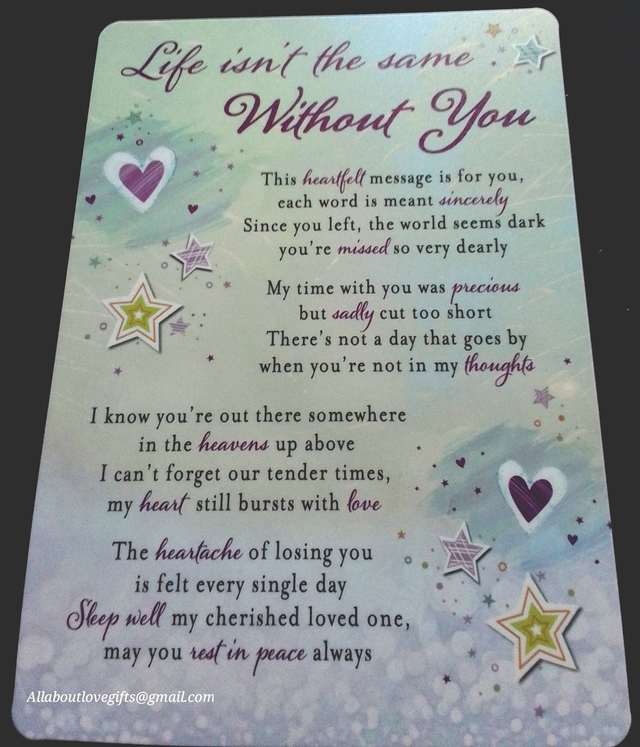 Life isn't the same
Without You
This heartfelt message is for you,
each word is meant sincerely
Since you left, the world seems dark
you're missed so very dearly
My time with you was precious
but sadly cut too short
There's not a day that goes by
when you're not in my thoughts
I know you're out there somewhere
in the heavens up above
I can't forget our tender times,
my heart still bursts with love
The heartache of losing you
is felt every single day
Sleep well my cherished loved one,
may you rest in peace always
Allaboutlovegifts@gmail.com